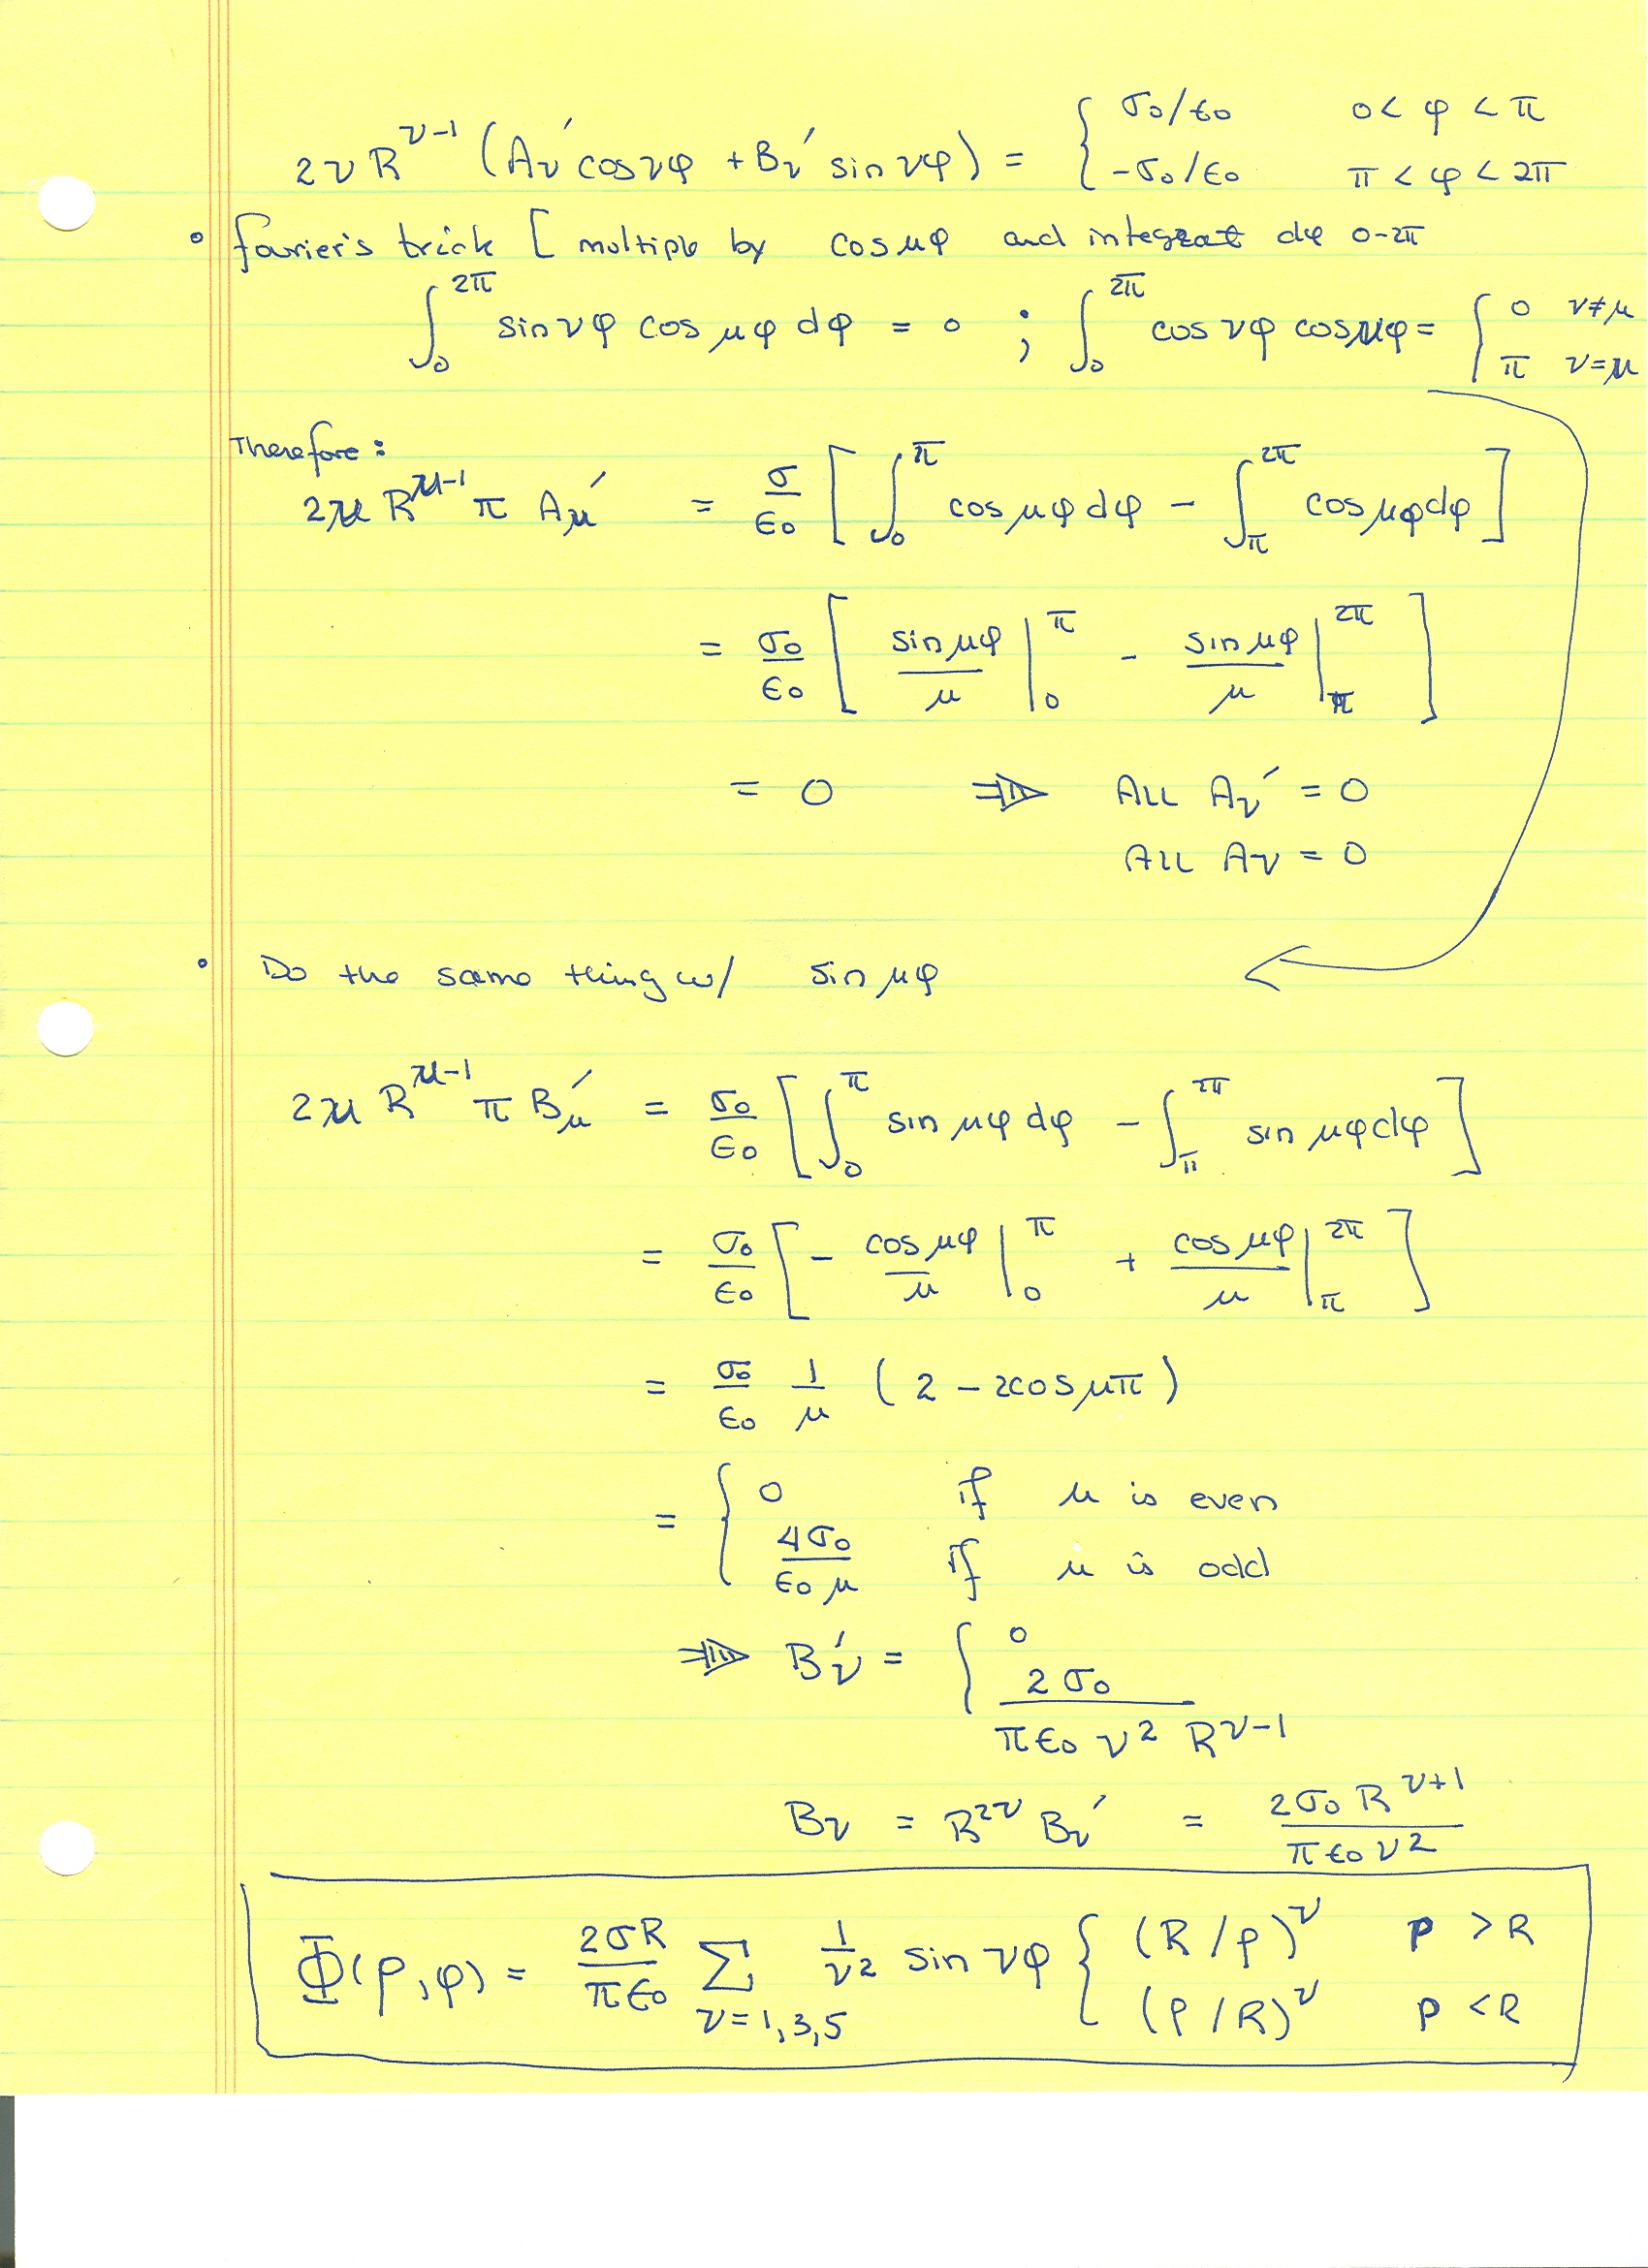 2νR^{ν-1} (A_ν′ cos νφ + B_ν′ sin νφ) = { σ₀/ε₀   0 < φ < π
-σ₀/ε₀   π < φ < 2π
• fourier's trick [ multiple by cos μφ and integrat dφ 0-2π
∫₀^{2π} sin νφ cos μφ dφ = 0 ; ∫₀^{2π} cos νφ cos μφ = { 0  ν≠μ
π  ν=μ
Therefore:
2μ R^{μ-1} π A_μ′ = σ/ε₀ [ ∫₀^π cos μφ dφ - ∫_π^{2π} cos μφ dφ ]
= σ₀/ε₀ [ sin μφ/μ |₀^π - sin μφ/μ |_π^{2π} ]
= 0 ⇒ ALL A_ν′ = 0
ALL A_ν = 0
• Do the same thing w/ sin μφ
2μ R^{μ-1} π B_μ′ = σ₀/ε₀ [ ∫₀^π sin μφ dφ - ∫_π^{2π} sin μφ dφ ]
= σ₀/ε₀ [ - cos μφ/μ |₀^π + cos μφ/μ |_π^{2π} ]
= σ₀/ε₀ 1/μ ( 2 - 2cos μπ )
= { 0 if μ is even
4σ₀/ε₀μ if μ is odd
⇒ B_ν′ = { 0
2σ₀/πε₀ν² R^{ν-1}
B_ν = R^{2ν} B_ν′ = 2σ₀R^{ν+1}/πε₀ν²
Φ(ρ,φ) = 2σR/πε₀ Σ_{ν=1,3,5} 1/ν² sin νφ { (R/ρ)^ν  ρ > R
(ρ/R)^ν  ρ < R